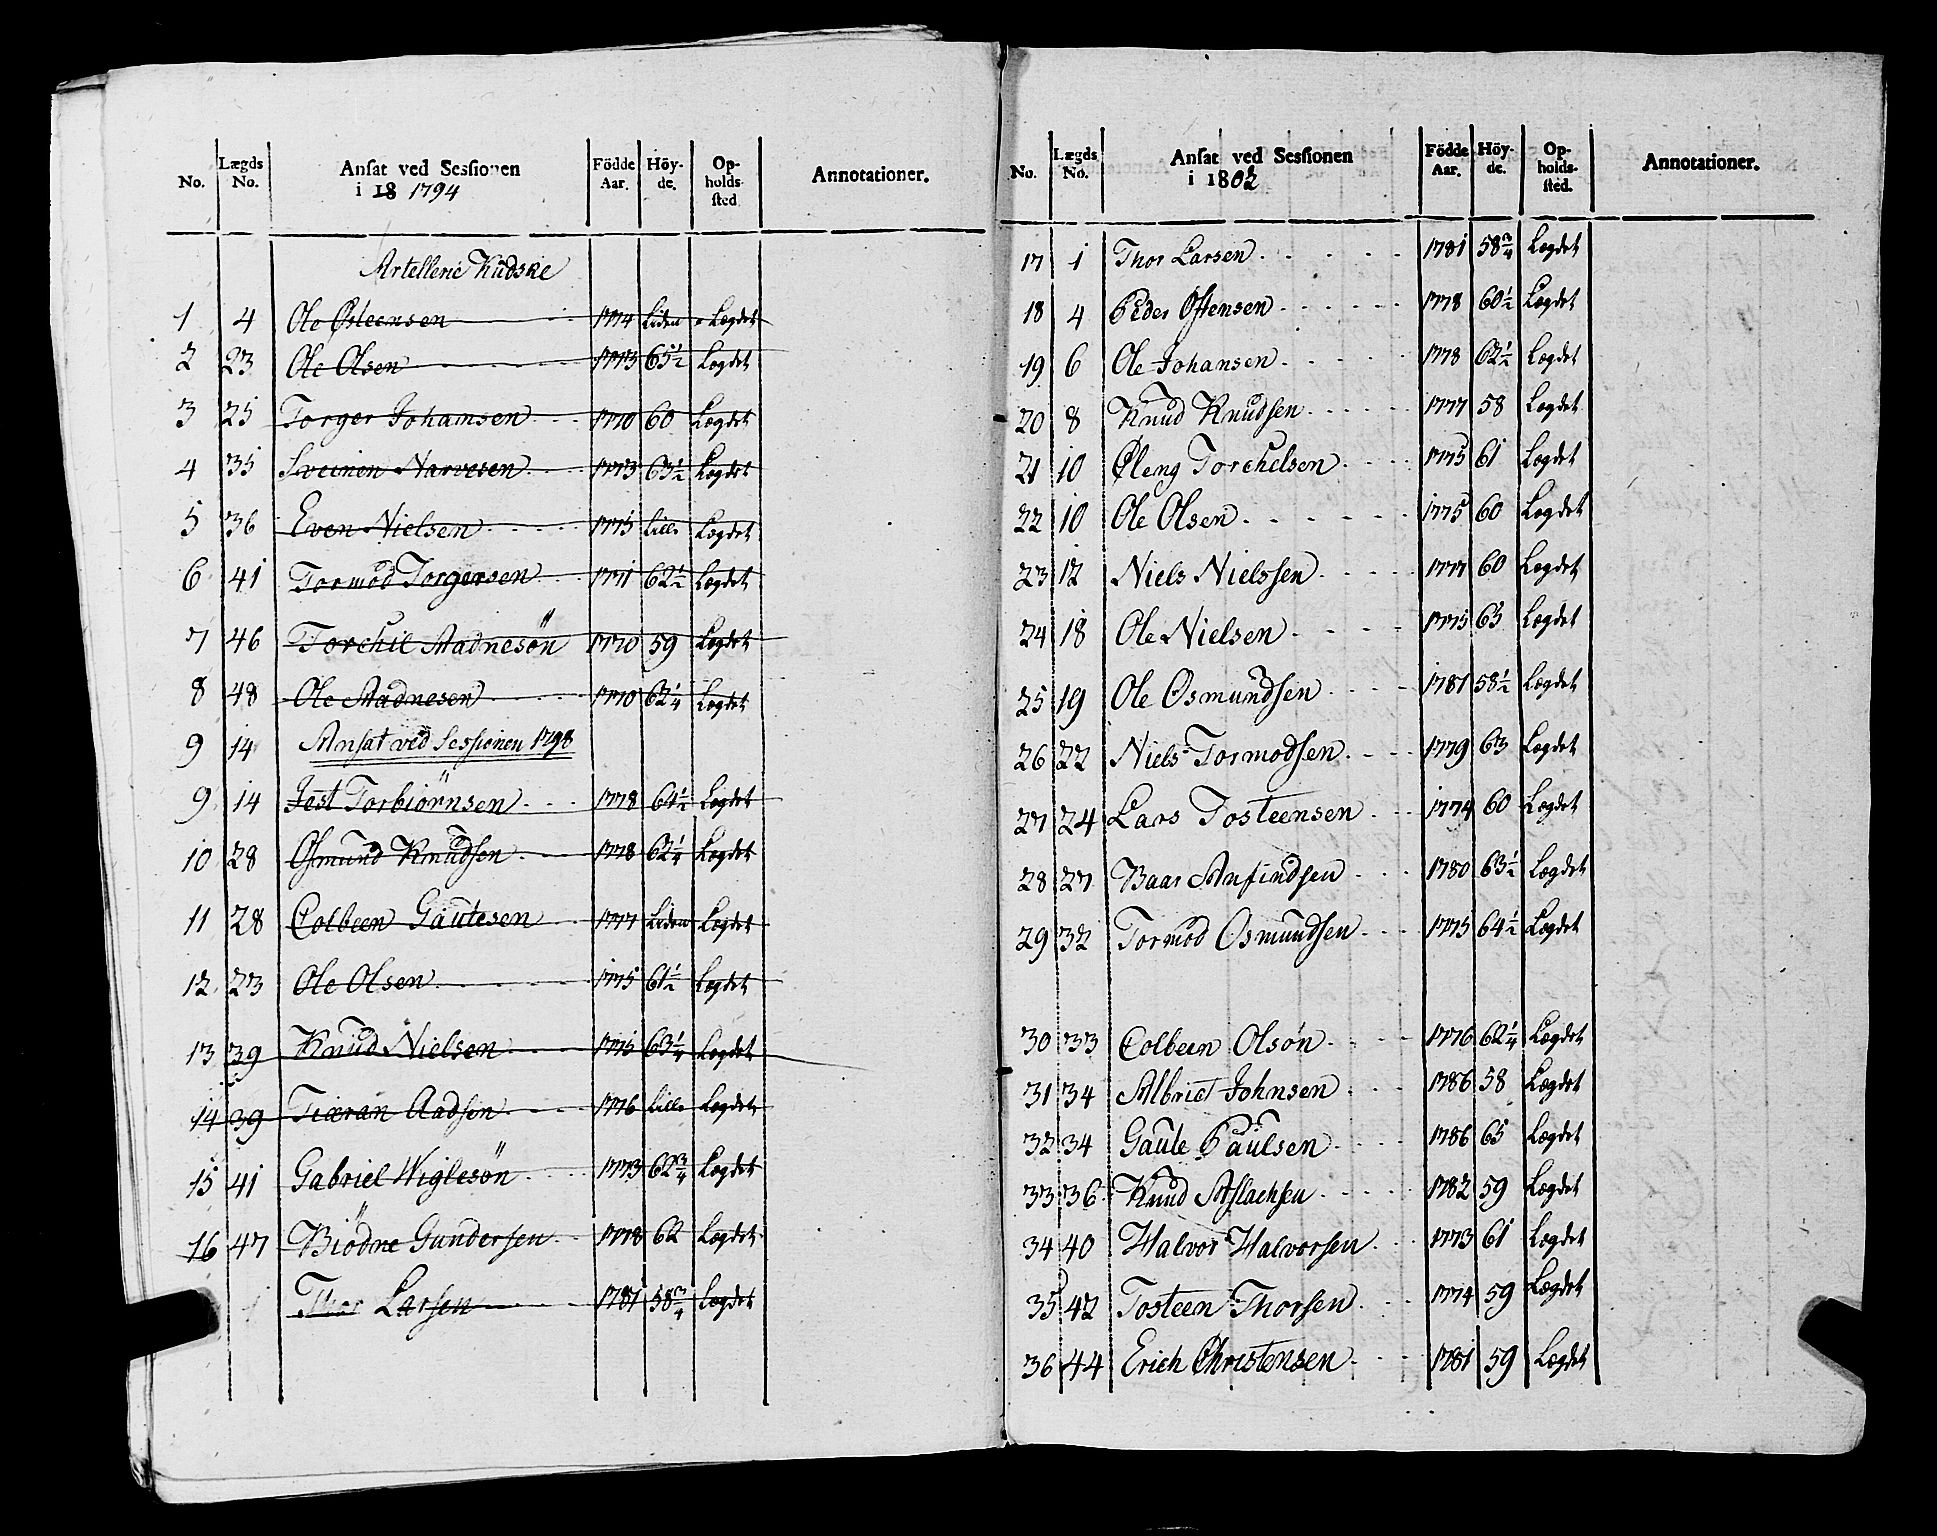 No. Lægds No. Ansat ved Sessionen i 18 1794 Födde Aar. Höyde. Opholdssted Annotationer.
Artellerie Kudske
1 4 Ole Østeensen 1774 liden Lægdet
2 23 Ole Olsen 1773 65 1/2 Lægdet
3 25 Torger Johansen 1770 60 Lægdet
4 35 Sveinen Narvesen 1773 63 1/2 Lægdet
5 36 Even Nielsen 1775 lille Lægdet
6 41 Tormod Torgersen 1771 62 1/2 Lægdet
7 46 Torchil Aadnesøn 1770 59 Lægdet
8 48 Ole Aadnesen 1770 62 1/4 Lægdet
9 14 Ansat ved Sessionen 1798
9 14 Jost Torbiørnsen 1778 64 1/2 Lægdet
10 28 Osmund Knudsen 1778 62 1/4 Lægdet
11 28 Colbeen Gautesen 1777 Liden Lægdet
12 23 Ole Olsen 1775 61 1/2 Lægdet
13 39 Knud Nielsen 1775 63 1/4 Lægdet
14 39 Tiæran Aadsen 1776 Lille Lægdet
15 41 Gabriel Wiglesøn 1773 62 3/4 Lægdet
16 47 Biödne Gundersen 1778 62 Lægdet
1 Thor Larsen 1781 58 3/4 Lægdet
No. Lægds No. Ansat ved Sessionen i 1802 Födde Aar. Höyde. Opholdssted. Annotationer.
17 1 Thor Larsen 1781 58 3/4 Lægdet
18 4 Peder Ostensen 1778 60 1/2 Lægdet
19 6 Ole Johansen 1778 62 1/2 Lægdet
20 8 Knud Knudsen 1777 58 Lægdet
21 10 Øleng Torchelsen 1775 61 Lægdet
22 10 Ole Olsen 1775 60 Lægdet
23 12 Niels Nielssen 1777 60 Lægdet
24 18 Ole Nielsen 1775 63 Lægdet
25 19 Ole Osmundsen 1781 58 1/2 Lægdet
26 22 Niels Tormodsen 1779 63 Lægdet
27 24 Lars Tosteensen 1774 60 Lægdet
28 27 Baar Anfindsen 1780 63 1/2 Lægdet
29 32 Tormod Osmundsen 1775 64 1/2 Lægdet
30 33 Colbeen Olsøn 1776 62 1/4 Lægdet
31 34 Albrict Johnsen 1786 58 Lægdet
32 34 Gaute Paulsen 1786 65 Lægdet
33 36 Knud Aslachsen 1782 59 Lægdet
34 40 Halvor Halvorsen 1773 61 Lægdet
35 42 Tosteen Thorsen 1774 59 Lægdet
36 44 Erich Christensen 1781 59 Lægdet